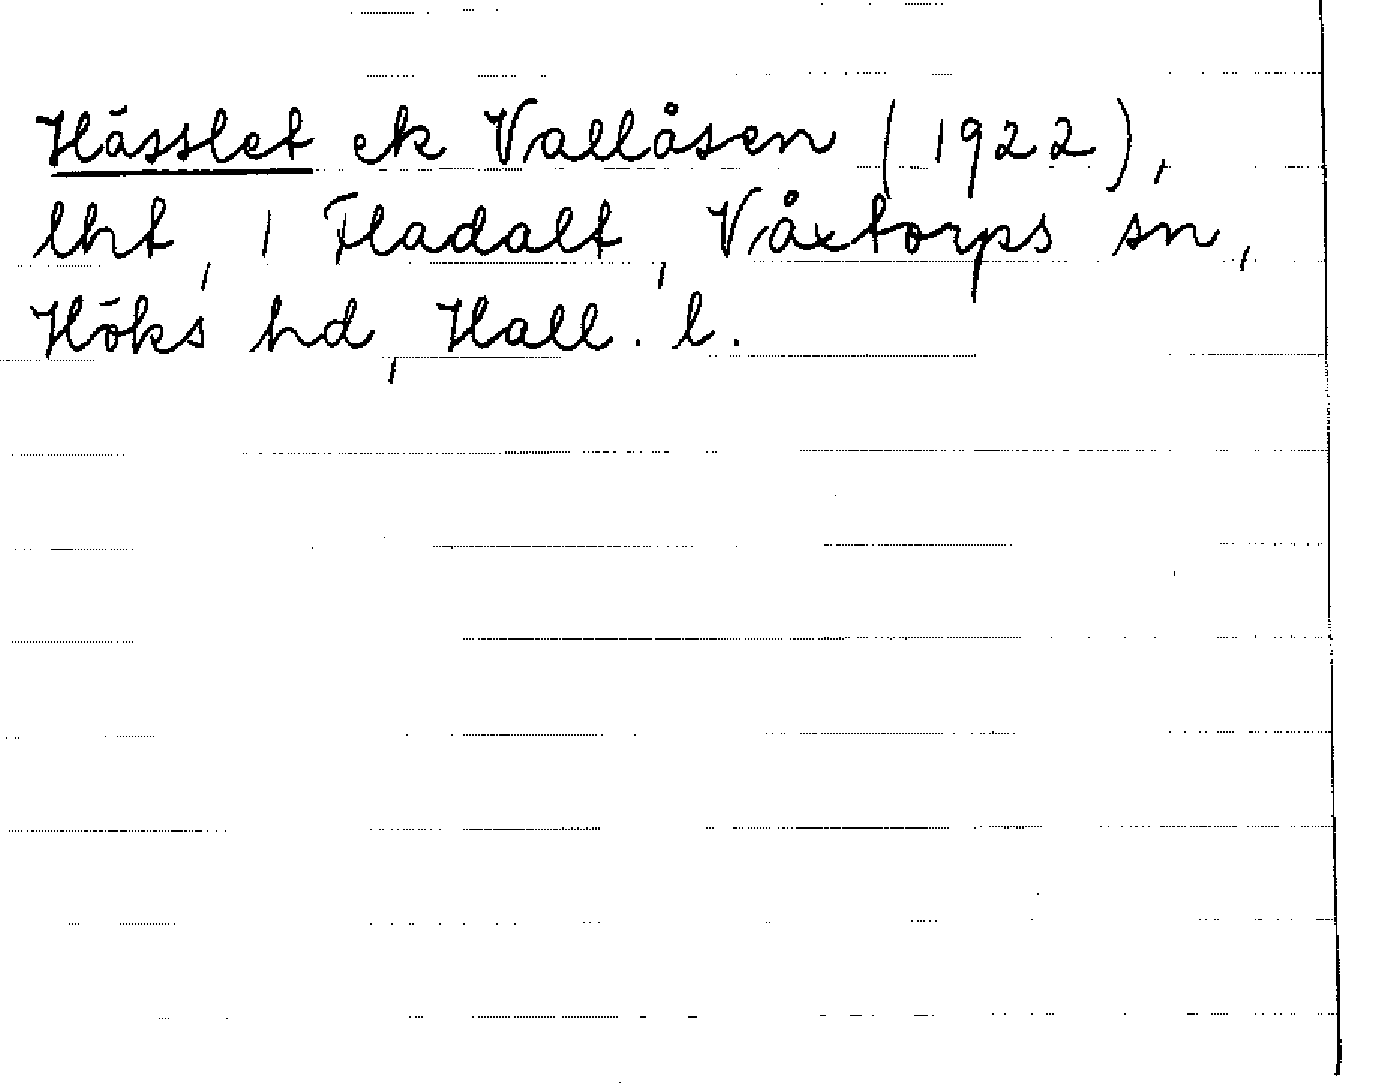 Hässlet el Vallåsen (1922),
lht, 1 Fladalt, Våxtorps sn,
Höks hd, Hall. l.